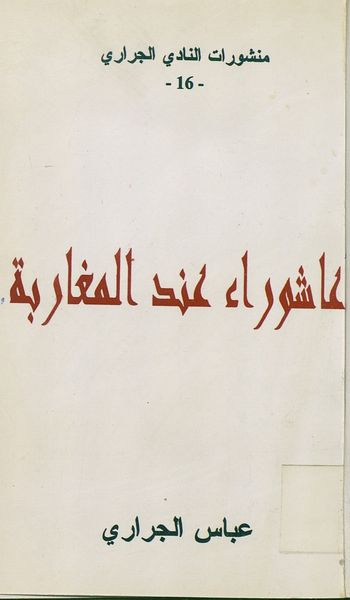 منشورات النادي الجراري
- 16 -
عاشوراء عند المغاربة
عباس الجراري